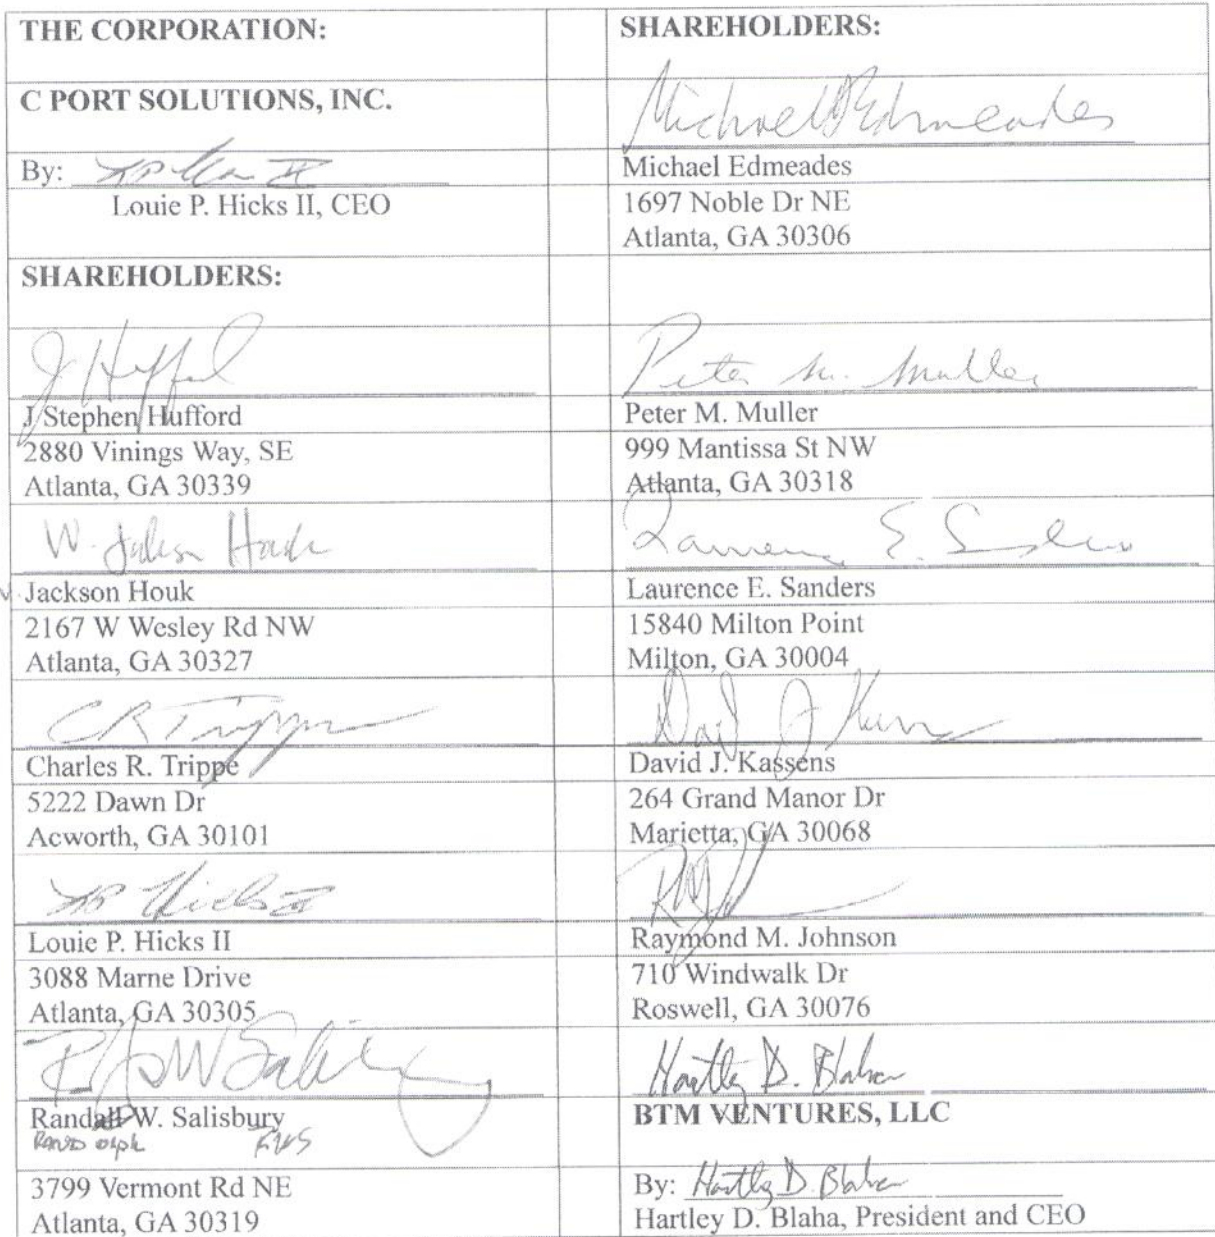 THE CORPORATION:
C PORT SOLUTIONS, INC.
By:
Louie P. Hicks II, CEO
SHAREHOLDERS:
J Hufford
J Stephen Hufford
2880 Vinings Way, SE
Atlanta, GA 30339
W. Jackson Houk
W. Jackson Houk
2167 W Wesley Rd NW
Atlanta, GA 30327
CR Trippe
Charles R. Trippe
5222 Dawn Dr
Acworth, GA 30101
LP Hicks II
Louie P. Hicks II
3088 Marne Drive
Atlanta, GA 30305
W Salisbury
Randall W. Salisbury
RANDOLPH
3799 Vermont Rd NE
Atlanta, GA 30319
SHAREHOLDERS:
Michael Edmeades
Michael Edmeades
1697 Noble Dr NE
Atlanta, GA 30306
Peter M. Muller
Peter M. Muller
999 Mantissa St NW
Atlanta, GA 30318
Laurence E. Sanders
Laurence E. Sanders
15840 Milton Point
Milton, GA 30004
David J
David J. Kassens
264 Grand Manor Dr
Marietta, GA 30068
Raymond M. Johnson
710 Windwalk Dr
Roswell, GA 30076
Hartley D. Blaha
BTM VENTURES, LLC
By: Hartley D. Blaha
Hartley D. Blaha, President and CEO